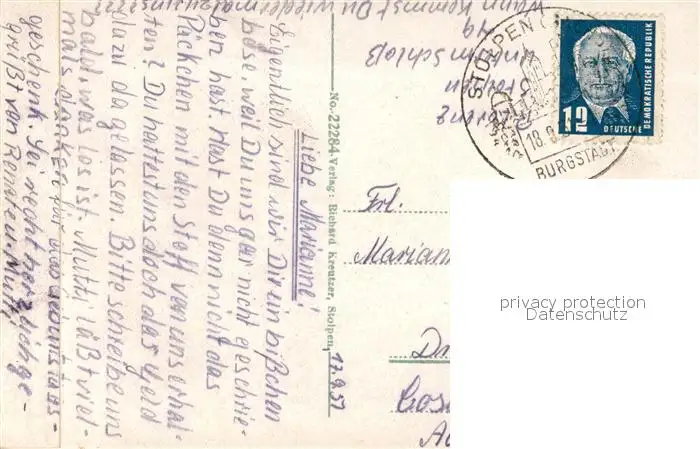 Liebe Marianne!
Eigentlich sind wir Dir ein bißchen
böse, weil Du uns gar nicht geschrie-
ben hast. Hast Du denn nicht das
Päckchen mit den Stoff von uns erhal-
ten? Du hattest uns doch das Geld
dazu da gelassen. Bitte schreibe uns
bald, was los ist. Mutti läßt viel-
mals danken für das Geburtstags-
geschenk. Sei recht herzlich ge-
grüßt von Renate u. Mutti
Wann kommst Du wieder mal
unterm Schloß
Stolpen
No. 22284 Verlag: Richard Kreutzer, Stolpen,
17.9.51
Frl.
Mariann
STOLPEN
18.9.
BURGSTADT
12
DEUTSCHE
DEMOKRATISCHE REPUBLIK
privacy protection
Datenschutz